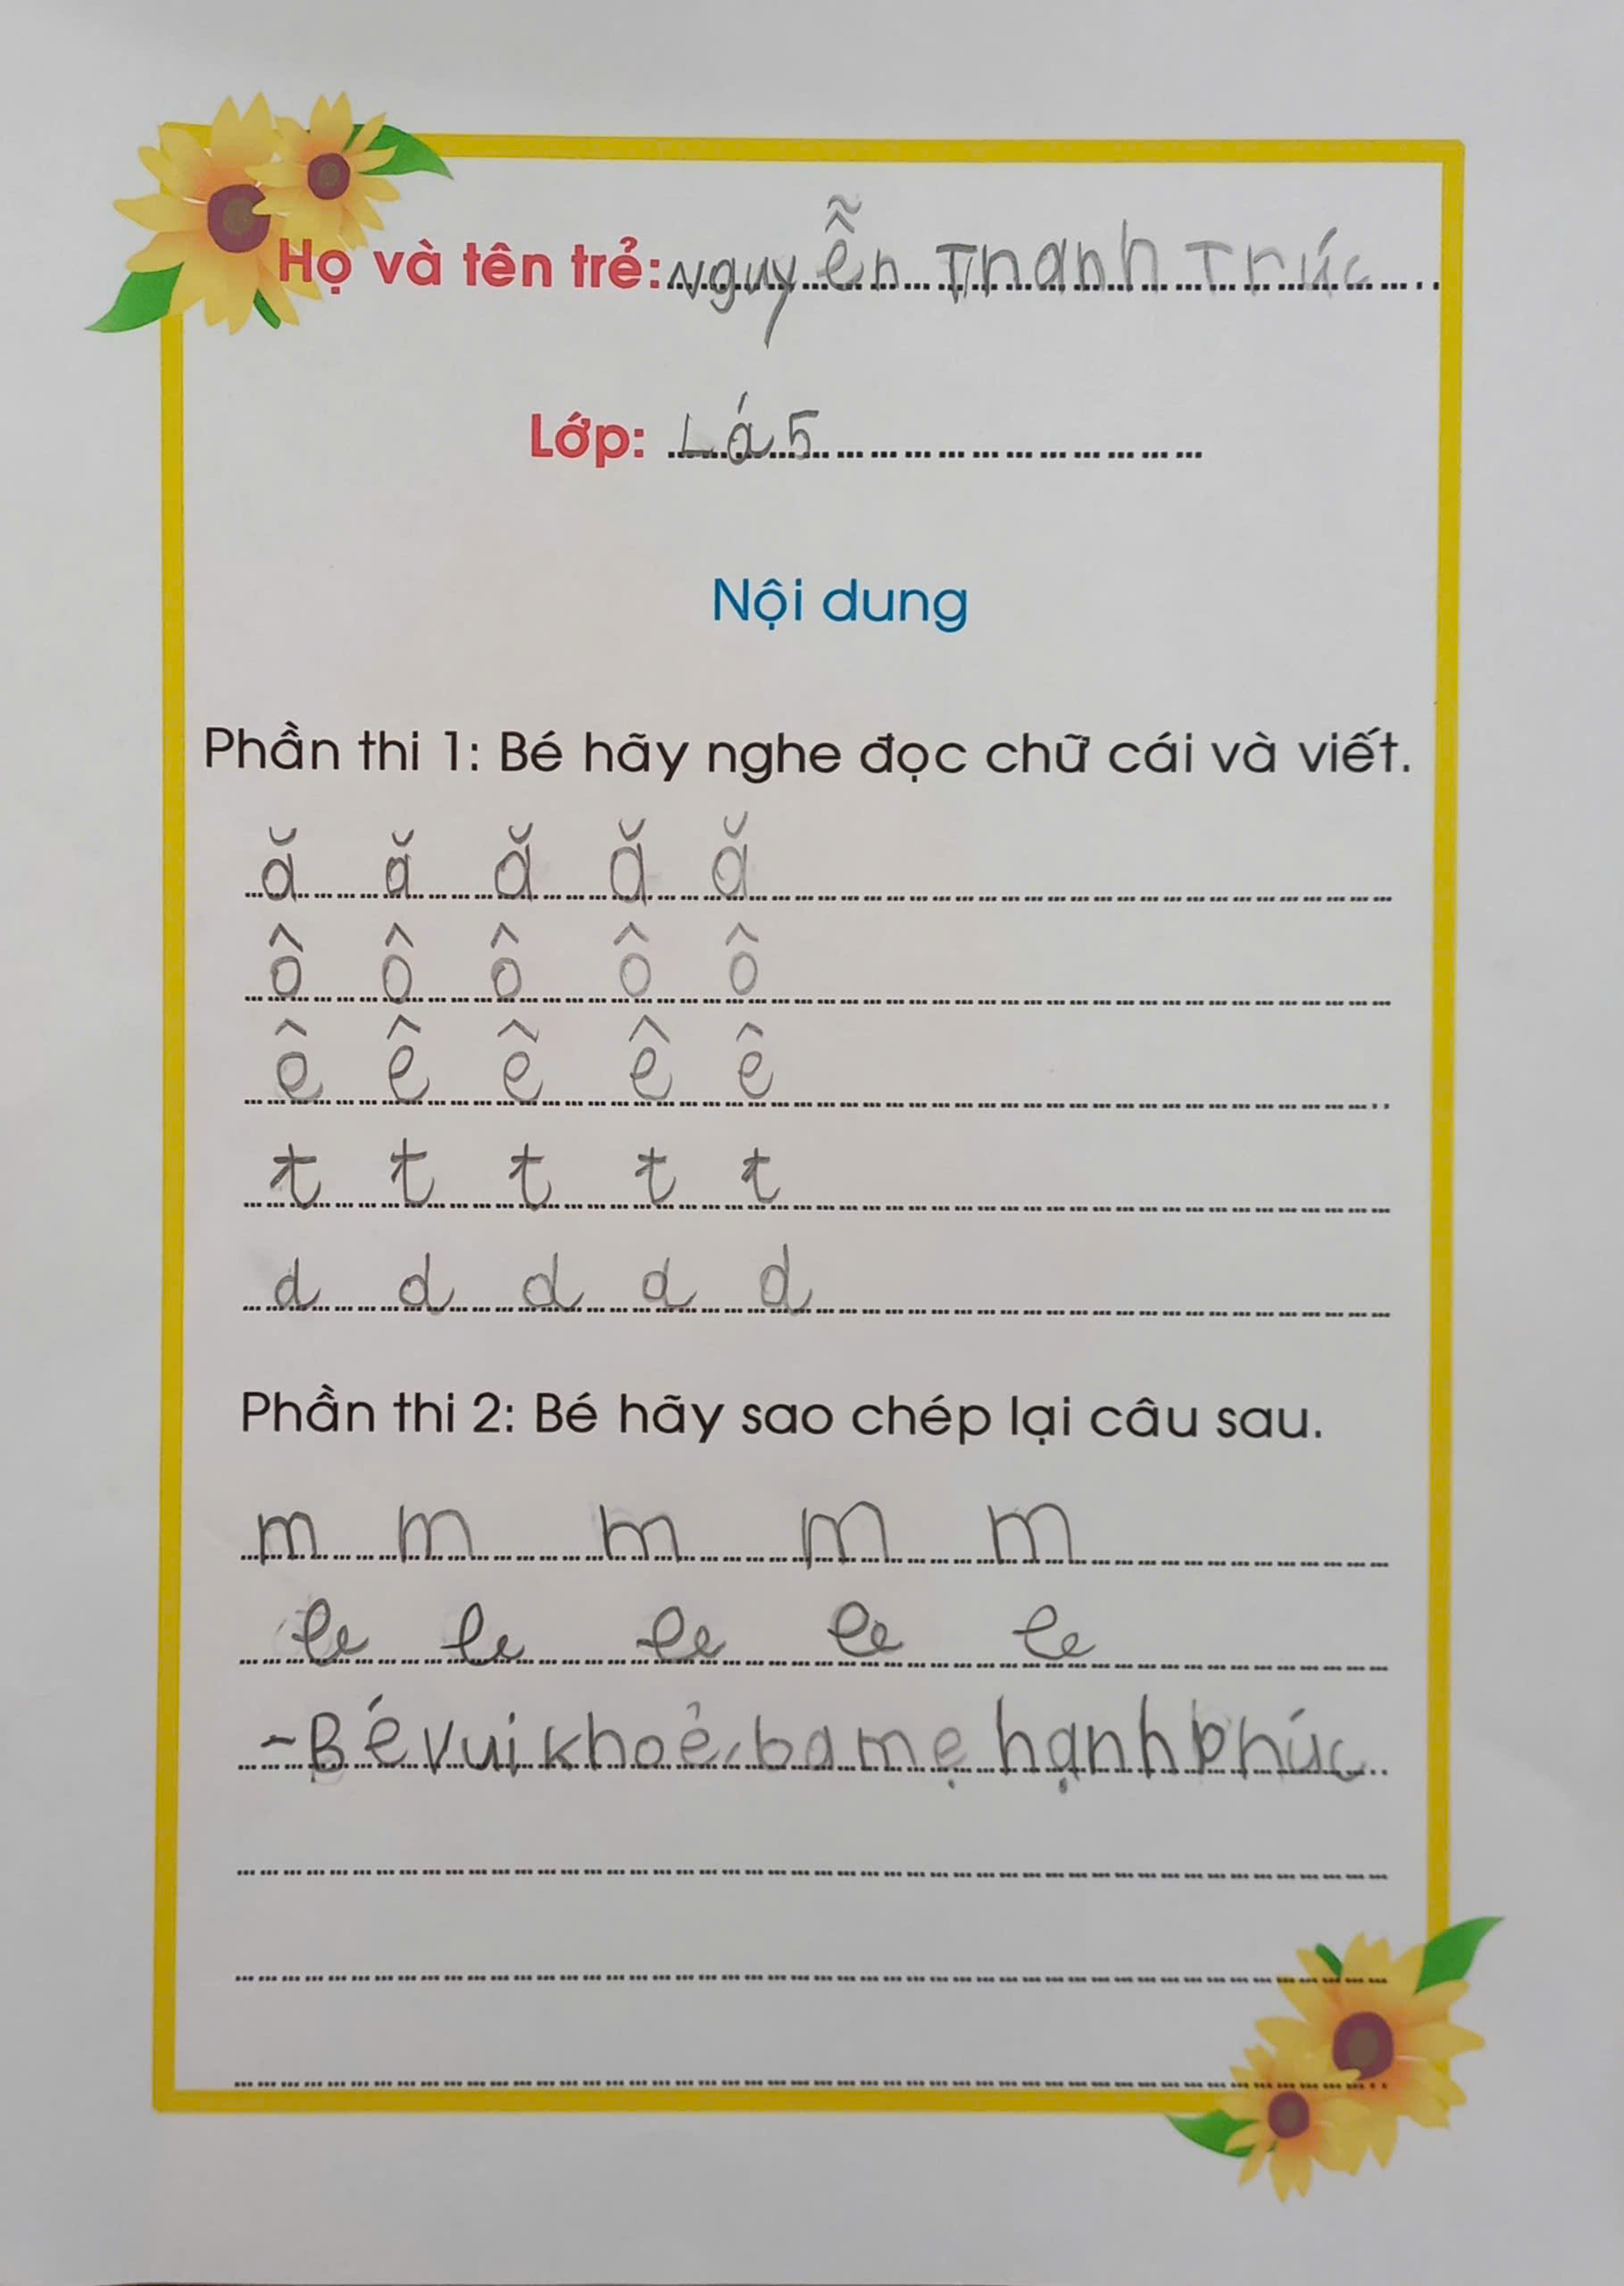 Họ và tên trẻ: Nguyễn Thanh Trúc
Lớp: Lá 5
Nội dung
Phần thi 1: Bé hãy nghe đọc chữ cái và viết.
ă ă ă ă ă
ô ô ô ô ô
ê ê ê ê ê
t t t t t
d d d d d
Phần thi 2: Bé hãy sao chép lại câu sau.
m m m m m
le le le le le
- Bé vui khoẻ, ba mẹ hạnh phúc